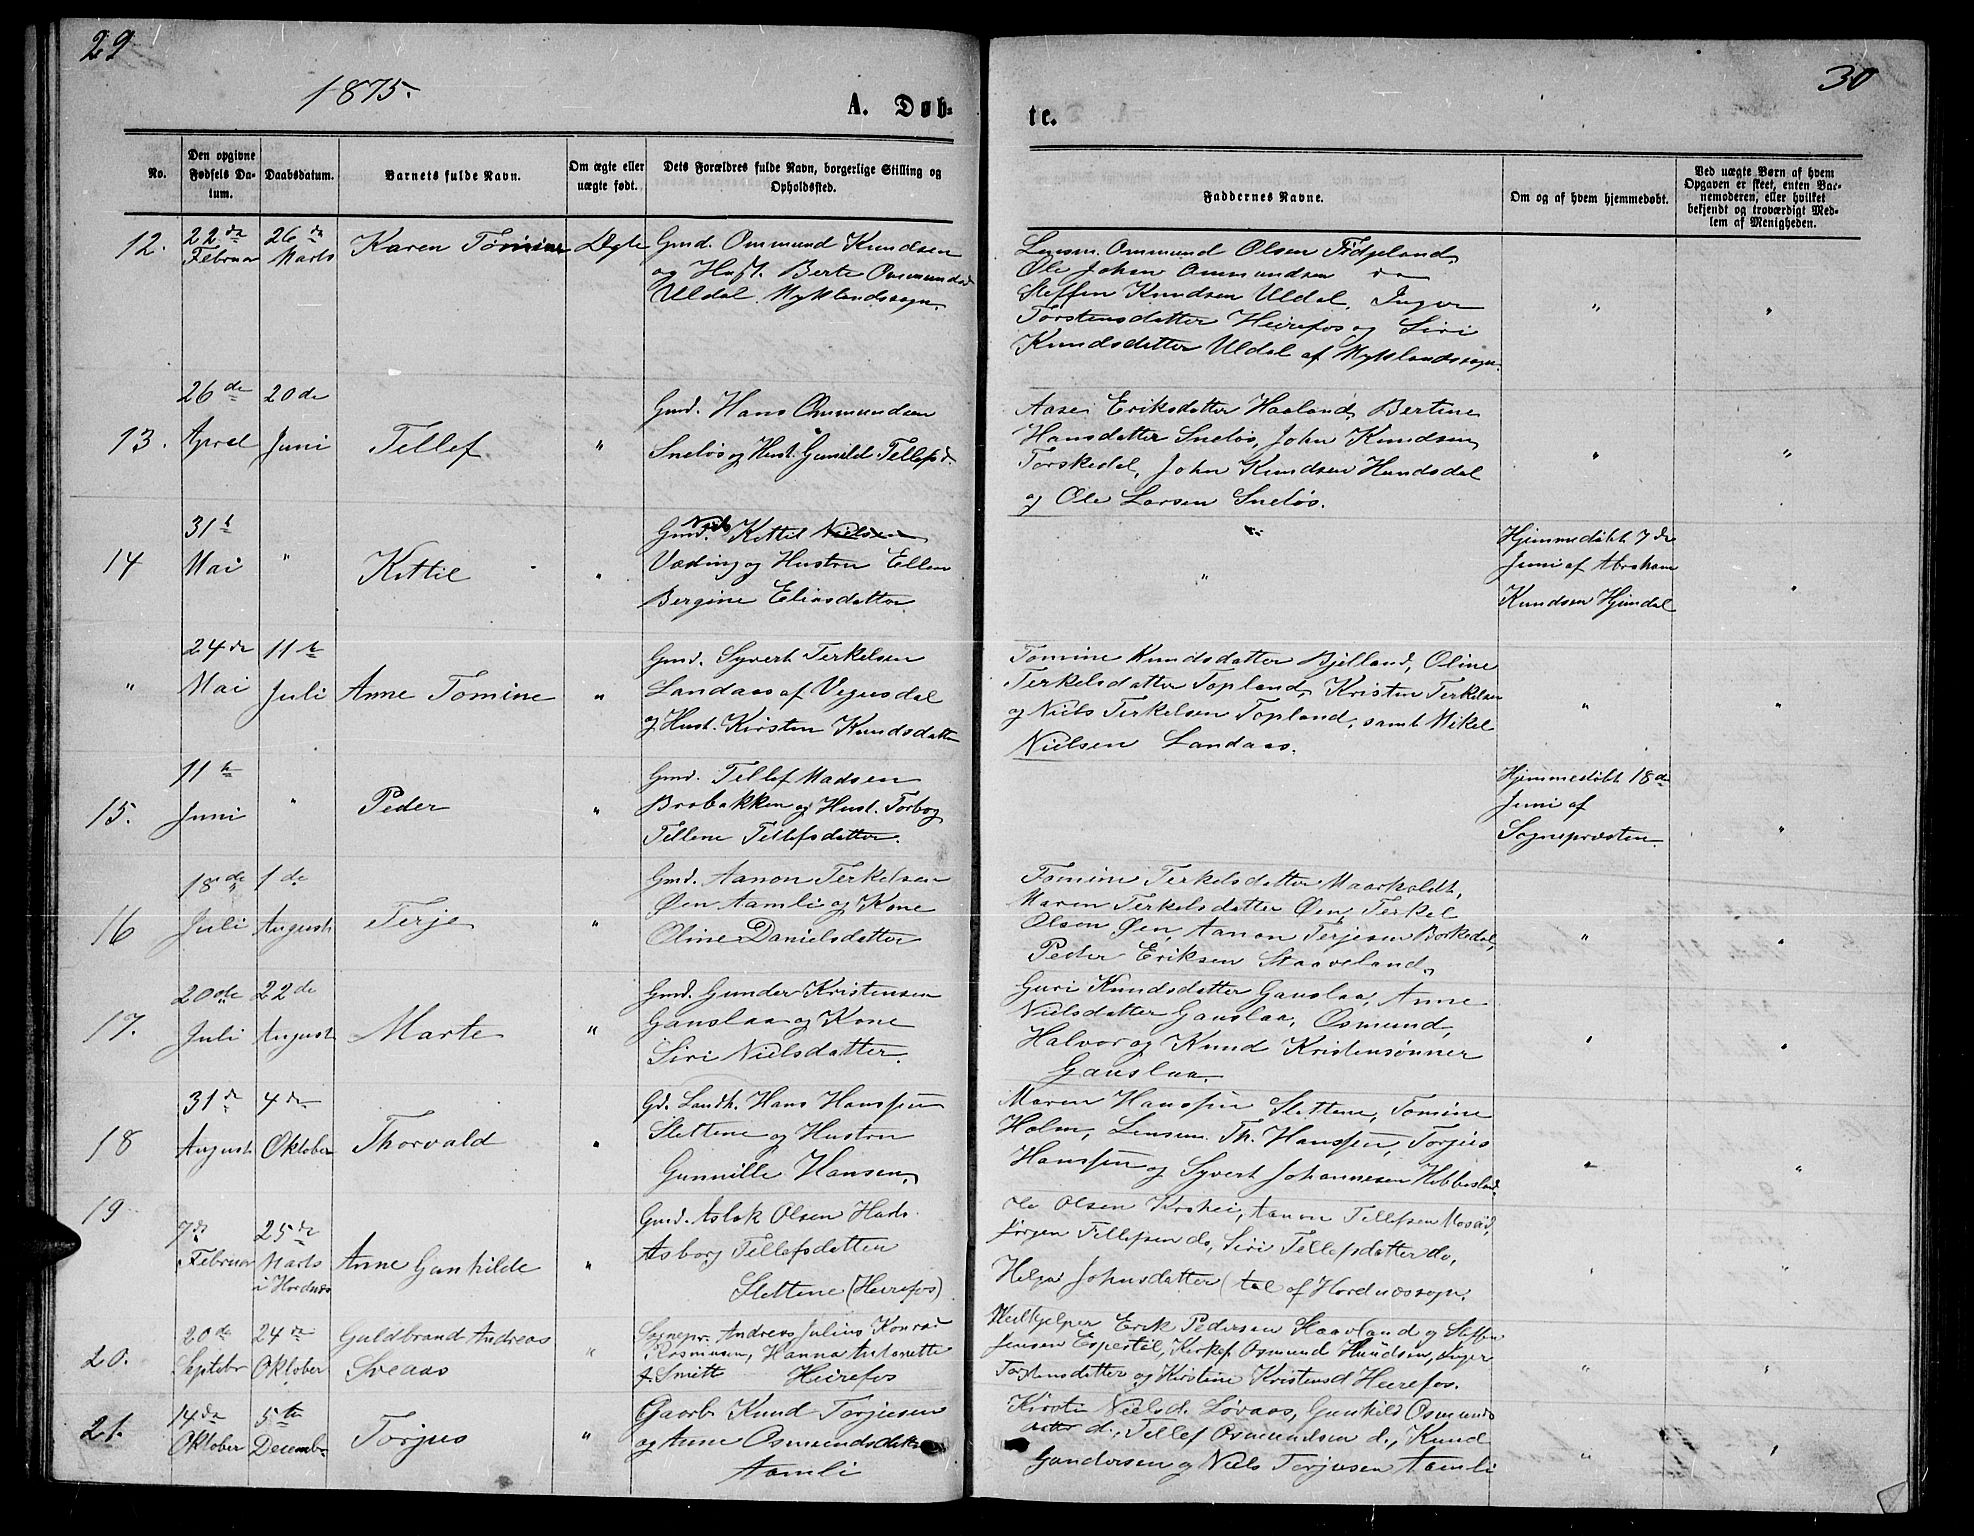 29
1875.
A. Døb-
te.
30
No.
Den opgivne Fødsels Da-
tum.
Daabsdatum.
Barnets fulde Navn.
Om ægte eller
uægte født.
Dets Forældres fulde Navn, borgerlige Stilling og
Opholdssted.
Faddernes Navne.
Om og af hvem hjemmedøbt.
Ved uægte Børn af hvem
Opgaven er skeet, enten Bar-
nemoderen, eller hvilket
bekjendt og troværdigt Med-
lem af Menigheden.
12.
22de
Februar
26de
Marts
Karen Tomine
Ægte
Gmd. Ommund Knudsen
og Hust. Berte Ommundsd
Uldal Myklandssogn.
Lensm. Ommund Olsen Fidjeland,
Ole Johan Ommundsen do
Steffen Knudsen Uldal, Inger
Torstensdatter Heirefos og Siri
Knudsdatter Uldal af Myklandssogn.
"
"
13.
26de
April
20de
Juni
Tellef
"
Gmd. Hans Ommundsen
Sneløs og Hust. Gunild Tellefsd.
Aase Eriksdatter Haaland, Bertine
Hansdatter Sneløs, John Knudsen
Torskedal, John Knudsen Hundsdal
og Ole Larsen Sneløs.
"
"
14
31te
Mai
"
Kittil
"
Gmd. Niels Kittil Nielsen
Vading og Hustru Ellen
Bergine Eliasdatter
"
Hjemmedøbt 7de
Juni af Abraham
Knudsen Hjimdal
"
"
24de
Mai
11te
Juli
Anne Tomine
"
Gmd. Syvert Terkelsen
Landaas af Vegusdal
og Hust. Kirsten Knudsdatter
Tomine Knudsdatter Bjelland, Oline
Terkelsdatter Topland, Kristen Terkelsen
og Niels Terkelsen Topland, samt Mikel
Nielsen Landaas.
"
"
15.
11te
Juni
"
Peder
"
Gmd. Tellef Madsen
Brobakken og Hust. Torbog
Tellene Tellefsdatter.
Hjemmedøbt 18de
Juni af
Sognepresten.
"
16
18de
Juli
1de
August
Terje
"
Gmd. Aanon Terkelsen
Øen Aamli og Kone
Oline Danielsdatter
Tomine Terkelsdatter Maarholdt,
Maren Terkelsdatter Øen, Terkel
Olsen Øen, Aanon Terjesen Borkedal,
Peder Eriksen Staaveland.
"
"
17.
20de
Juli
22de
August
Marte
"
Gmd. Gunder Kristensen
Gauslaa og Kone
Siri Nielsdatter.
Guri Knudsdatter Gauslaa, Anne
Nielsdatter Gauslaa, Osmund,
Halvor og Knud Kristensønner
Gauslaa.
"
"
18
31de
August
4de
Oktober
Thorvald
"
Gd. Landh. Hans Hanssen
Slettene og Hustru
Gunnille Hansen.
Maren Hanssen Slettene, Tomine
Holm, Lensm. Th. Hanssen, Torjus
Hanssen og Syvert Johannesen Hebbesland.
"
"
19
7de
Februar
25de
Marts
i Hordnæs
Anne Gunhilde
"
Gmd. Aslak Olsen Hads.
Asborg Tellefsdatter
Slettene (Heirefos)
Ole Olsen Krohei, Aanon Tellefsen Mosøid,
Jørgen Tellefsen do, Siri Tellefsdatter do,
Helga Johnsdatter (tal of Hordnæssogn.
"
"
20.
20de
Septebr
24de
Oktober
Guldbrand Andreas
Sveaas
"
Sognepr. Andreas Julius Konrad
Rasmussen, Hanna Antonette
f. Smitt Heirefos
Medhjelper Erik Pedersen Staavland og Steffen
Jensen Espestøl, Kirkes. Osmund Knudsen, Inger
Torstensdatter og Kirstine Kristensd Heirefos.
"
"
21.
14de
Oktober
5te
Decembr
Torjus
"
Gaarb. Knud Torjusen
og Anne Osmundsdatter
Aamli
Kirsti Nielsd. Løvaas, Gunhild Osmunds
datter d., Tellef Osmundsen d., Knud
Gundersen og Niels Torjusen Aamli
"
"